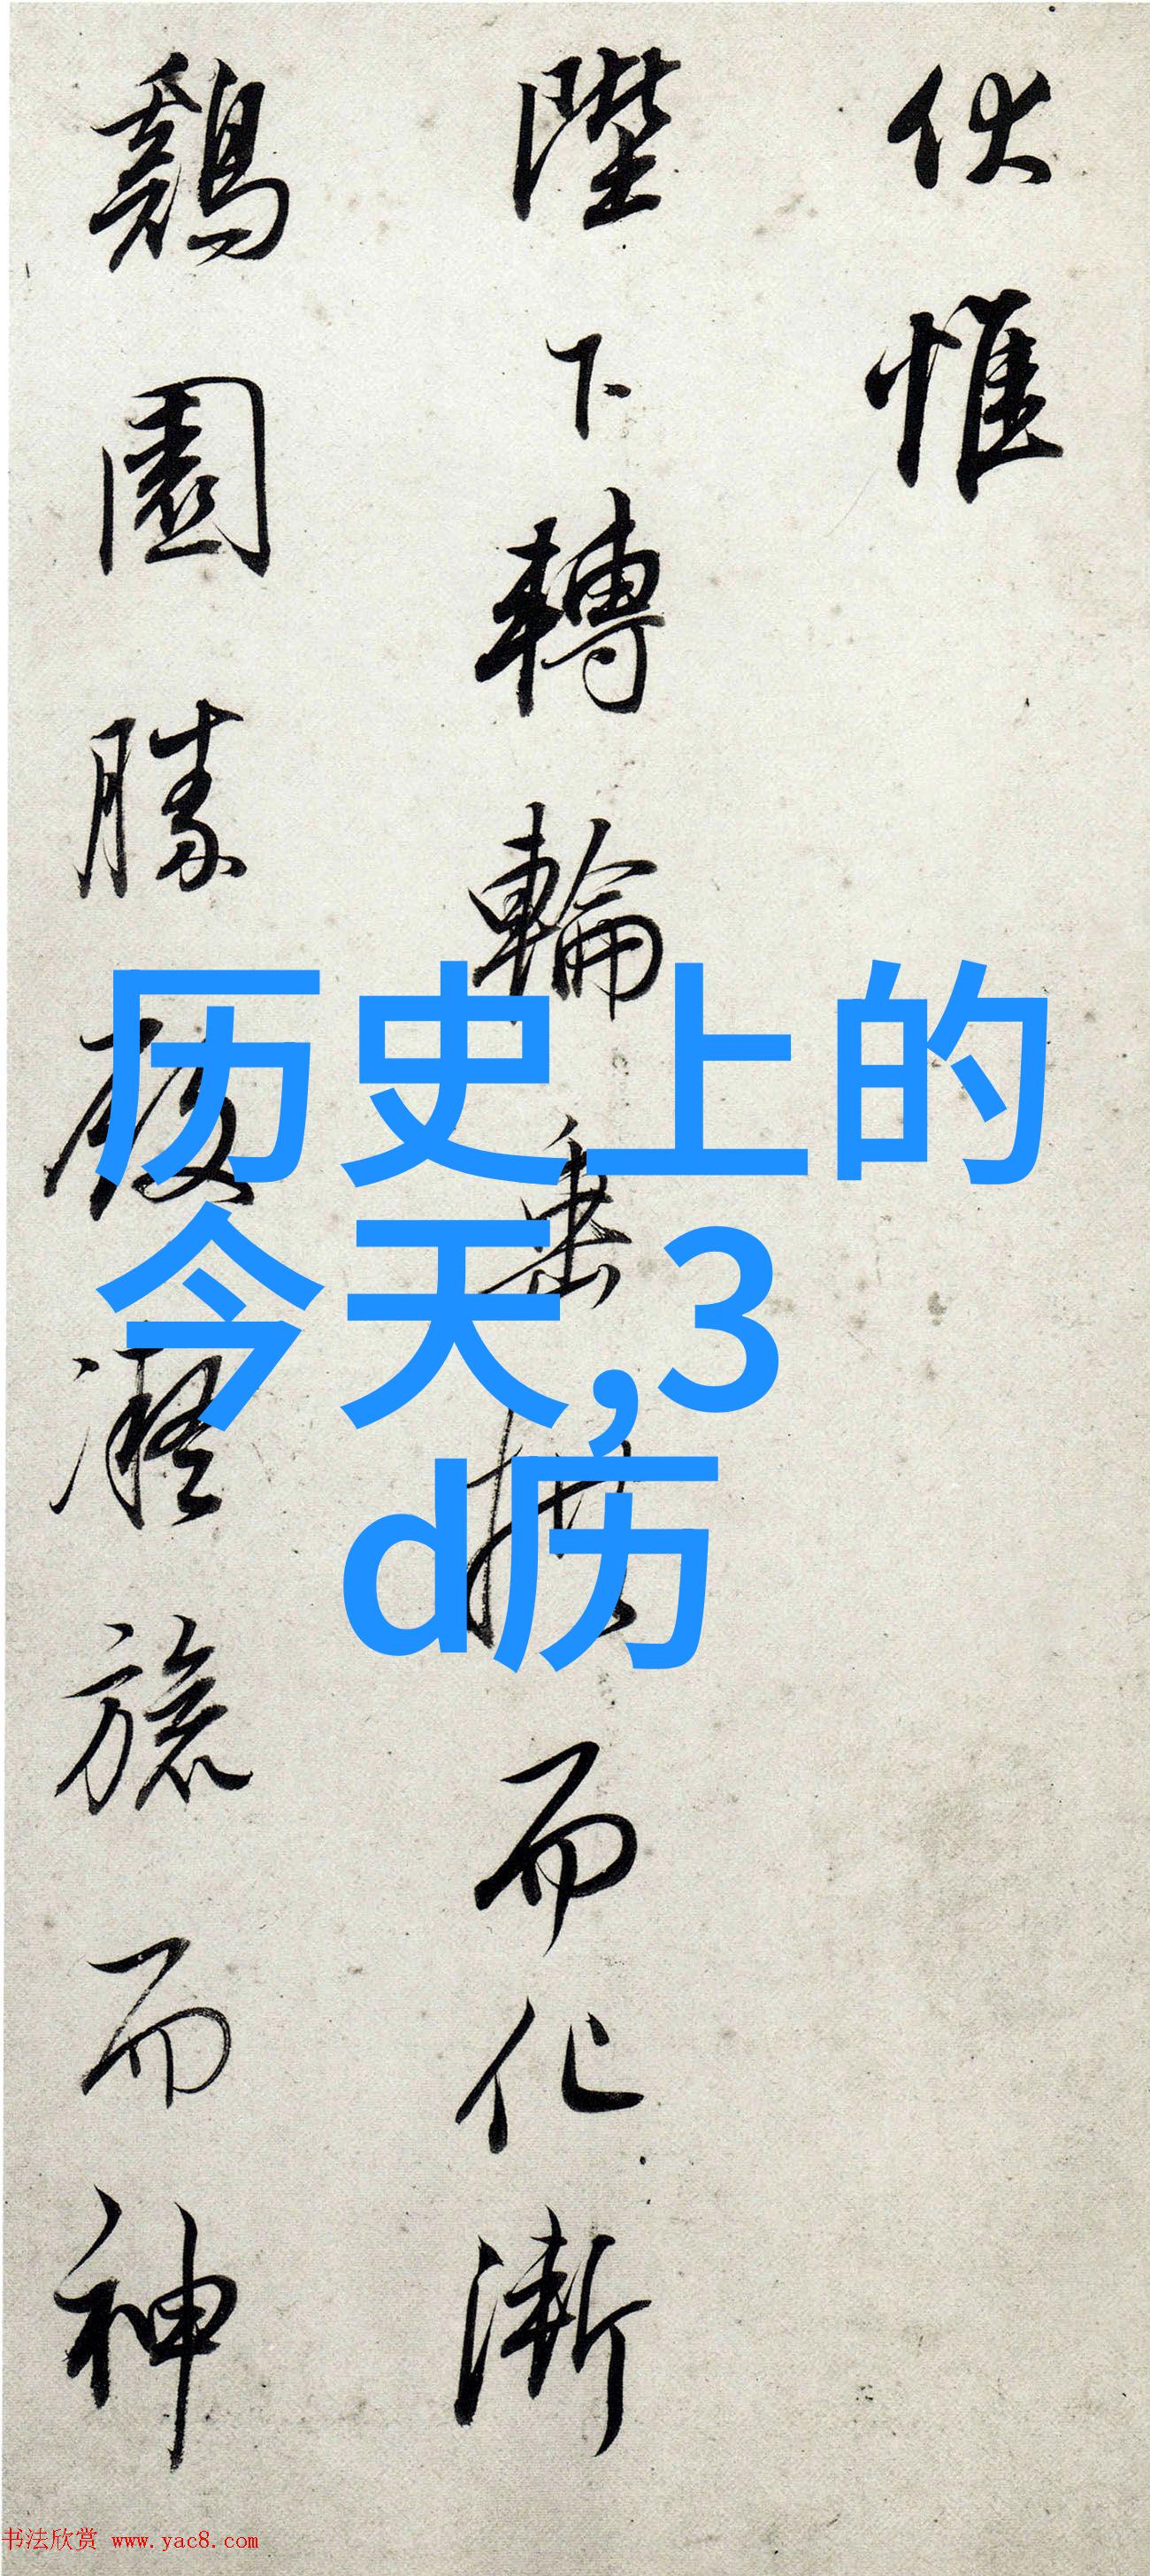 伏惟
陛下轉輪垂拱而化漸
鷄園勝殿凝旒而神
历史上的
今天,3
d历
书法欣赏 www.yac8.com